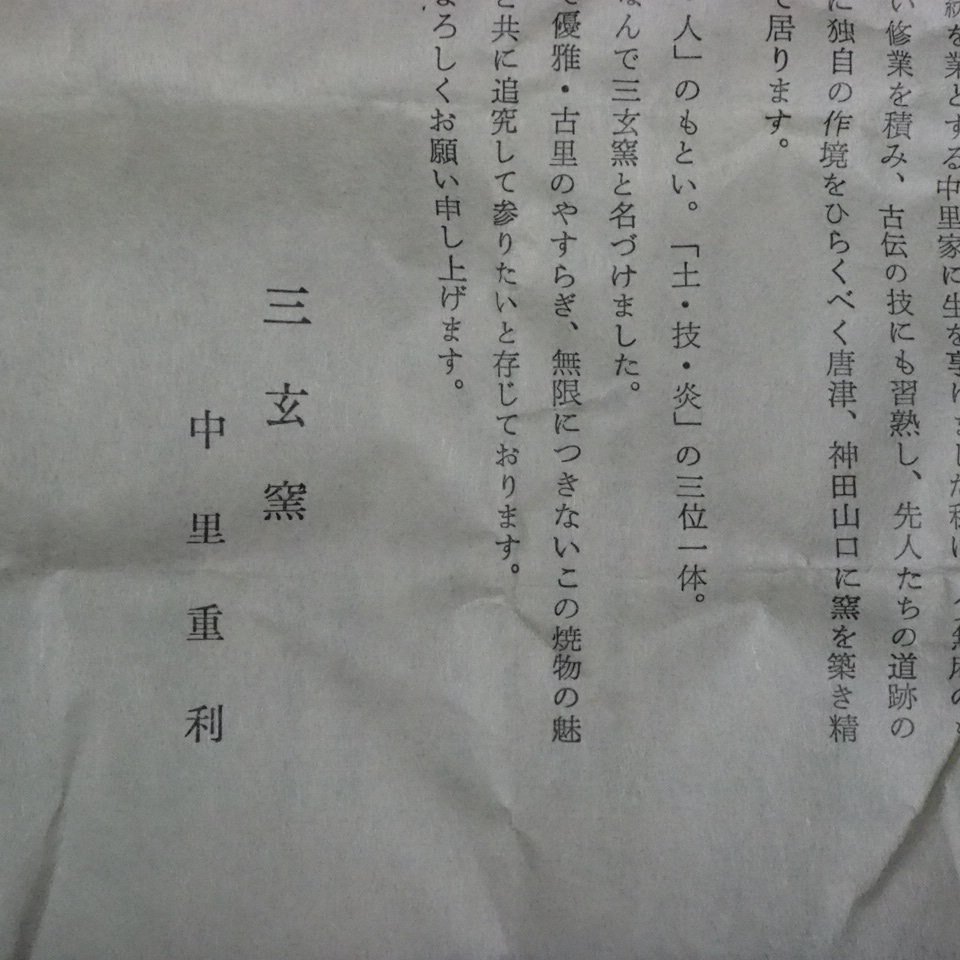 統を業とする中里家に生を享けました私は、父無庵の
い修業を積み、古伝の技にも習熟し、先人たちの道跡の
に独自の作境をひらくべく唐津、神田山口に窯を築き精
て居ります。
人」のもとい。「土・技・炎」の三位一体。
なんで三玄窯と名づけました。
優雅・古里のやすらぎ、無限につきないこの焼物の魅
と共に追究して参りたいと存じております。
よろしくお願い申し上げます。
三玄窯
中里重利